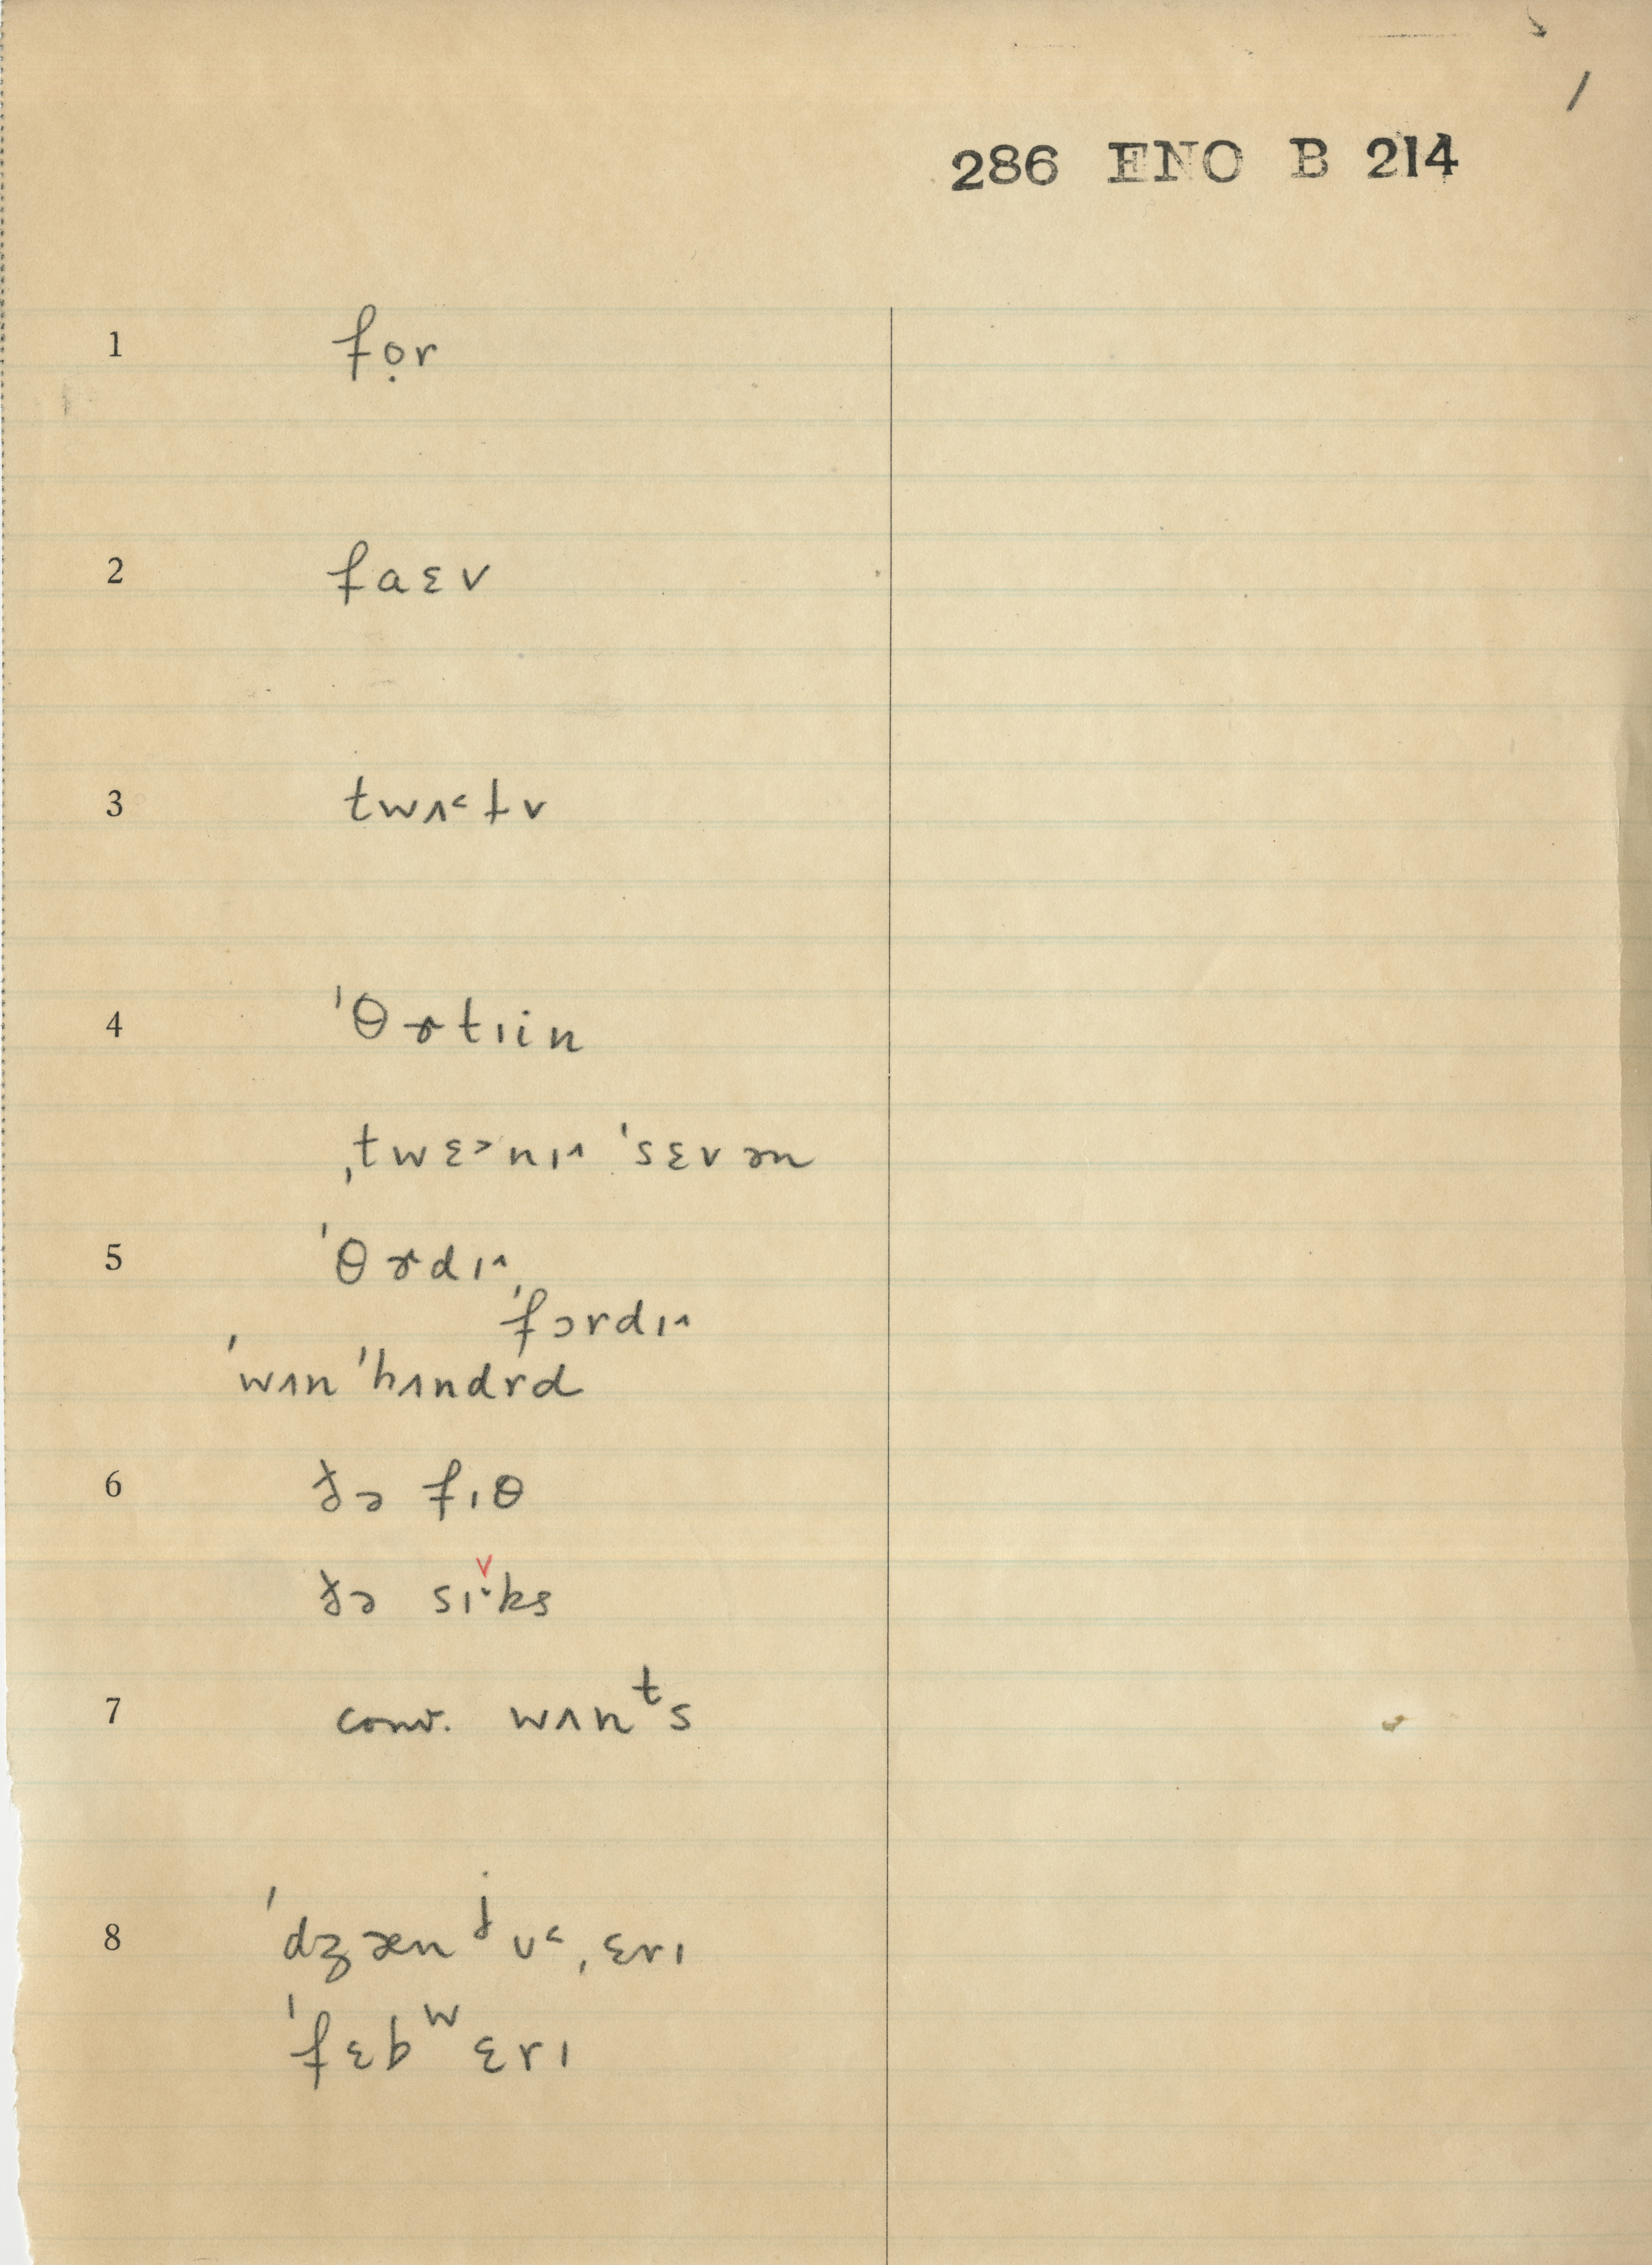 /
286 ENO B 214
1 fọr
2 faɛv
3 twʌ˂ɫv
4 ˈθɚtɪin
ˌtwɛ˃nɪ˄ ˈsɛvən
5 ˈθɚdɪ˄
ˈfɔrdɪ˄
ˈwʌn ˈhʌndrd
6 ðə fɪθ
ðə sɪ˅ks
7 conv. wʌnᵗs
8 ˈdʒænʲʊ˂ˌɛrɪ
ˈfɛbʷɛrɪ